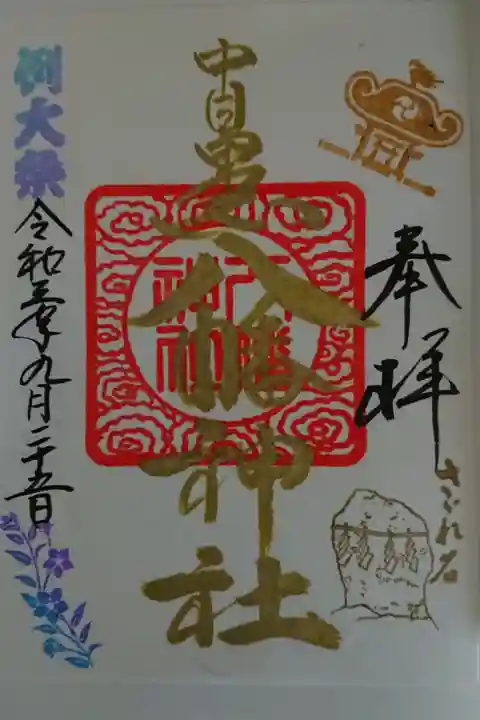 奉拝
さゞれ石
中目黒八幡神社
八幡
神社
例大祭
令和三年九月二十五日